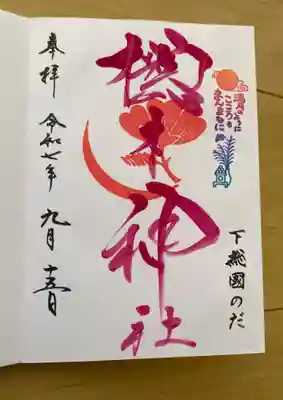 こころも
まんまるに
下総國のだ
櫻木神社
奉拝 令和七年 九月 十五日